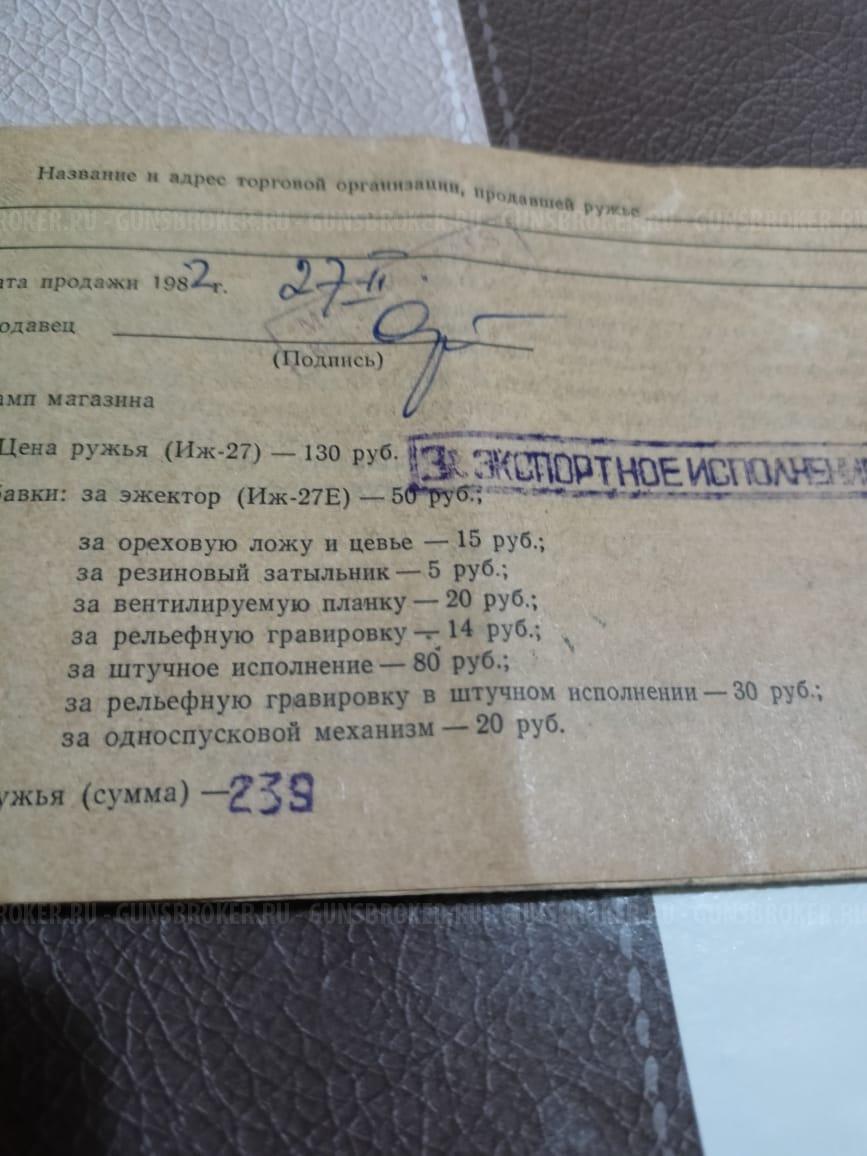 Название и адрес торговой организации, продавшей ружье
ROKER.RU - GUNSBROKER.RU - GUNSBROKER.RU - GUNSBROKER.RU - GUNSBROKER
ата продажи 1982г. 27-II
одавец
(Подпись)
амп магазина
Цена ружья (Иж-27) — 130 руб. ЗА ЭКСПОРТНОЕ ИСПОЛНЕНИ
авки: за эжектор (Иж-27Е) — 50 руб.;
за ореховую ложу и цевье — 15 руб.;
за резиновый затыльник — 5 руб.;
за вентилируемую планку — 20 руб.;
за рельефную гравировку — 14 руб.;
за штучное исполнение — 80 руб.;
за рельефную гравировку в штучном исполнении — 30 руб.;
за односпусковой механизм — 20 руб.
ужья (сумма) — 239
ROKER.RU - GUNSBROKER.RU - GUNSBROKER.RU - GUNSBROKER.RU - GUNSBROKER